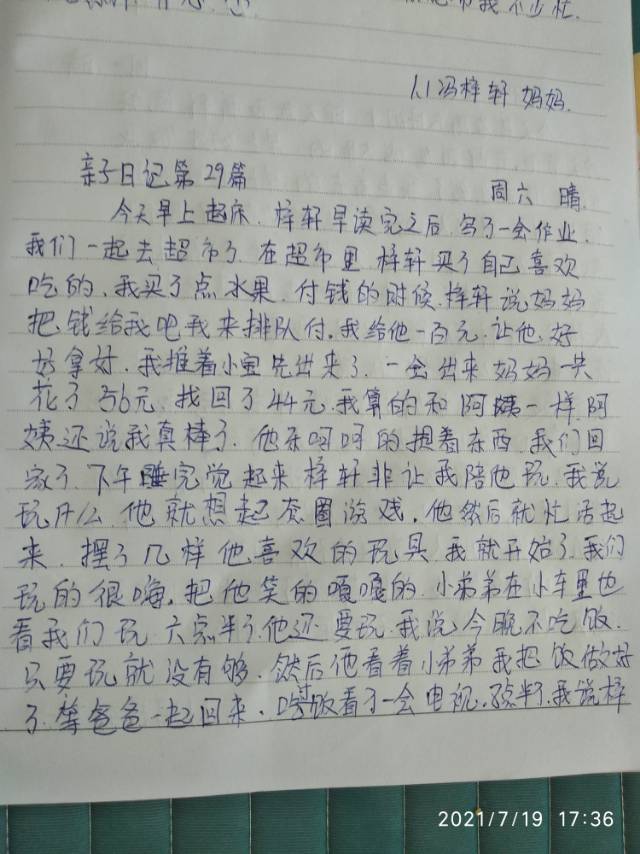 我不少忙.
从冯梓轩 妈妈.
亲子日记第29篇
周六 晴
今天早上起床.梓轩早读完之后.写了一会作业.
我们一起去超市了.在超市里 梓轩买了自己喜欢
吃的.我买了点水果.付钱的时候.梓轩说妈妈
把钱给我吧我来排队付.我给他一百元.让他.好
好拿好.我推着小宝先出来了.一会出来 妈妈一共
花了56元.找回了44元.我算的和阿姨一样.阿
姨还说我真棒了.他乐呵呵的提着东西.我们回
家了.下午睡完觉起来梓轩非让我陪他玩.我说
玩什么.他就想起套圈游戏.他然后就忙活起
来.摆了几样他喜欢的玩具.我就开始了.我们
玩的很嗨.把他笑的嘎嘎的.小弟弟在小车里也
看我们玩 六点半了.他还要玩.我说今晚不吃饭.
只要玩就没有够.然后他看着小弟弟我把饭做好
了.等爸爸一起回来.吃过饭看了一会电视.点半了.我说梓
2021/7/19 17:36